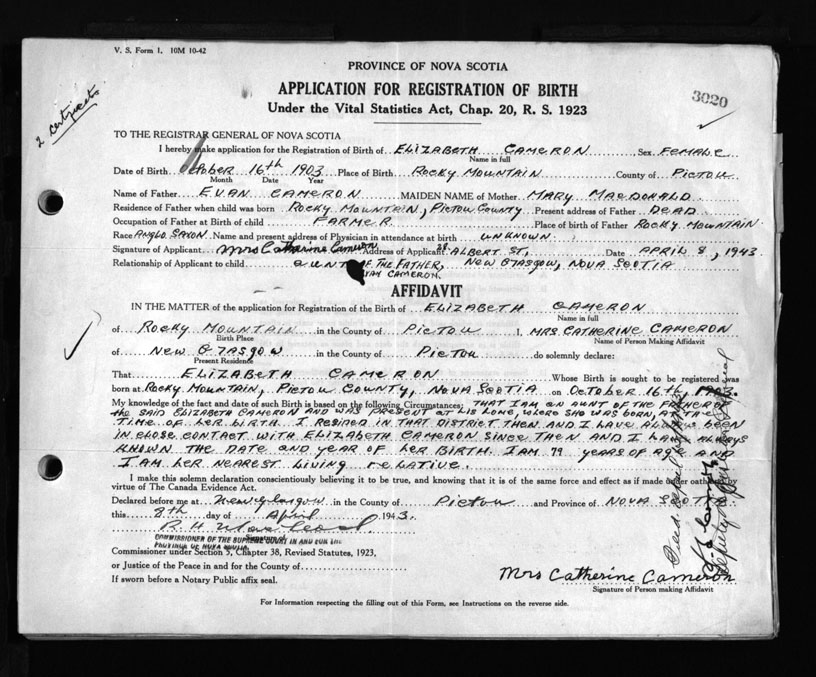 V. S. Form 1. 10M 10-42
PROVINCE OF NOVA SCOTIA
APPLICATION FOR REGISTRATION OF BIRTH
3020
Under the Vital Statistics Act, Chap. 20, R. S. 1923
2 certificates
TO THE REGISTRAR GENERAL OF NOVA SCOTIA
I hereby make application for the Registration of Birth of ELIZABETH CAMERON Sex FEMALE
Name in full
Date of Birth October 16th 1903 Place of Birth ROCKY MOUNTAIN County of PICTOU
Month Date Year
Name of Father EVAN CAMERON MAIDEN NAME of Mother MARY MACDONALD
Residence of Father when child was born ROCKY MOUNTAIN, PICTOU COUNTY Present address of Father DEAD
Occupation of Father at Birth of child FARMER Place of birth of Father ROCKY MOUNTAIN
Race ANGLO SAXON Name and present address of Physician in attendance at birth UNKNOWN
Signature of Applicant Mrs Catherine Cameron Address of Applicant ALBERT ST, Date APRIL 8, 1943
Relationship of Applicant to child AUNT OF THE FATHER, NEW GLASGOW, NOVA SCOTIA
CAMERON.
AFFIDAVIT
IN THE MATTER of the application for Registration of the Birth of ELIZABETH CAMERON
Name in full
of ROCKY MOUNTAIN in the County of PICTOU I, MRS. CATHERINE CAMERON
Birth Place Name of Person Making Affidavit
of NEW GLASGOW in the County of PICTOU do solemnly declare:
Present Residence
That ELIZABETH CAMERON Whose Birth is sought to be registered was
born at ROCKY MOUNTAIN, PICTOU COUNTY, NOVA SCOTIA on OCTOBER 16th, 1903.
My knowledge of the fact and date of such Birth is based on the following Circumstances: THAT I AM AN AUNT OF THE FATHER OF
the SAID ELIZABETH CAMERON AND WAS PRESENT AT HIS HOME, WHERE SHE WAS BORN, AT THE
TIME OF HER BIRTH. I RESIDED IN THAT DISTRICT THEN AND I HAVE ALWAYS BEEN
IN CLOSE CONTACT WITH ELIZABETH CAMERON SINCE THEN AND I HAVE ALWAYS
KNOWN THE DATE AND YEAR OF HER BIRTH. I AM 79 YEARS OF AGE AND
I AM HER NEAREST LIVING RELATIVE.
I make this solemn declaration conscientiously believing it to be true, and knowing that it is of the same force and effect as if made under oath by
virtue of The Canada Evidence Act.
Declared before me at New Glasgow in the County of Pictou and Province of NOVA SCOTIA
this 8th day of April 1943.
R. H. MacLeod
Signature of
COMMISSIONER OF THE SUPREME COURT IN AND FOR THE
PROVINCE OF NOVA SCOTIA
Commissioner under Section 5, Chapter 38, Revised Statutes, 1923,
or Justice of the Peace in and for the County of
If sworn before a Notary Public affix seal.
Mrs Catherine Cameron
Signature of Person making Affidavit
For Information respecting the filling out of this Form, see Instructions on the reverse side.